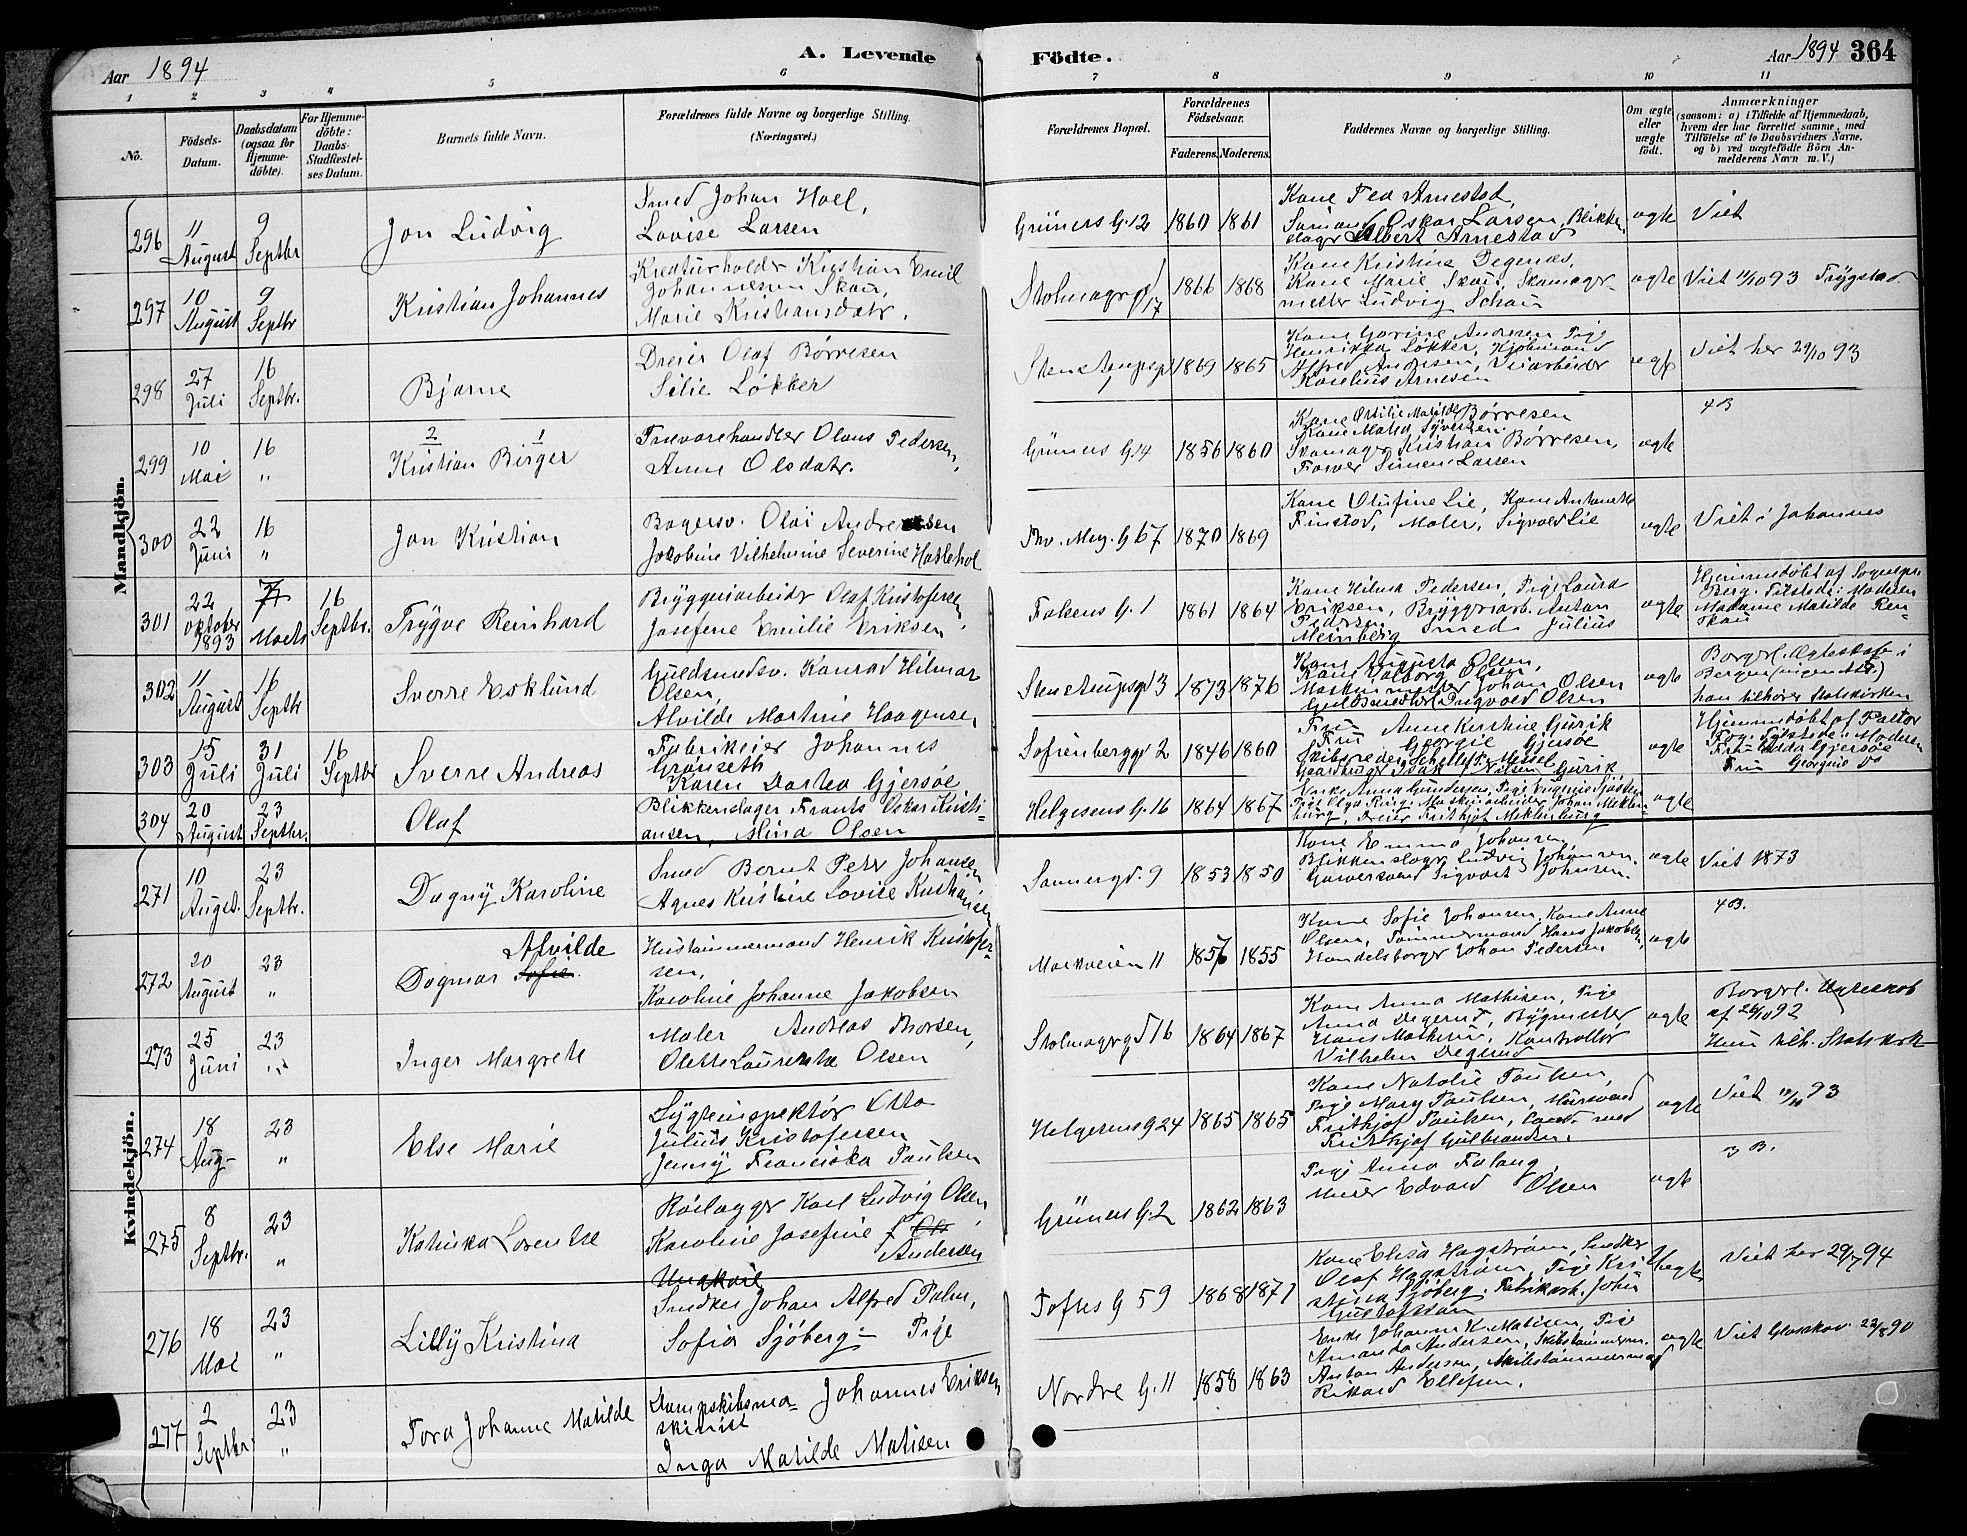 Aar 1894
A. Levende
Födte.
Aar 1894 364
1 2 3 4 5 6 7 8 9 10 11
No.
Födsels-Datum.
Daabsdatum (ogsaa for Hjemme-döbte).
For Hjemme-döbte: Daabs-Stadfestel-ses Datum.
Barnets fulde Navn.
Forældrenes fulde Navne og borgerlige Stilling. (Næringsvei.)
Forældrenes Bopæl.
Forældrenes Födselsaar.
Faderens. Moderens.
Faddernes Navne og borgerlige Stilling.
Om ægte eller uægte födt.
Anmærkninger
(saasom: a) i Tilfælde af Hjemmedaab, hvem der har forrettet samme, med Tilföielse af to Daabsvidners Navne. og b) ved uægtefödte Börn An-melderens Navn m. V.)
Mandkjön.
296 11 August 9 Septbr
Jon Ludvig
Smed Johan Hoel,
Lovise Larsen
Grüners G. 12 1860 1861
Kone Tea Arnestad,
Oskar Larsen, Blikken
slager Albert Arnestad
ægte
Viet
297 10 August 9 Septbr
Kristian Johannes
Kreaturholder Kristian Emil
Johannesen Skau,
Marie Kristiansdatr.
Stolmagergd 17 1866 1868
Kone Kristine Degenes,
Kone Marie Skau, Skomager-
mester Ludvig Schau
ægte
Viet 11/10 93 Trygstad
298 27 Juli 16 Septbr.
Bjarne
Dreier Olaf Børresen
Silie Løkker
1869 1865
Kone Gorine Andresen Pige
Henrikka Løkker, Kjøbmand
Alfred Andresen,
Arnesen
ægte
Viet her 29/10 93
299 10 Mai 16 "
2 1
Kristian Birger
Trævarehandler Olaus Pedersen,
Anne Olsdatr.
Grüners G 4 1856 1860
Kone Ottilie Matilde Børresen
Kone Matea Syversen
Skomager Kristian Børresen,
Larsen
ægte
4 B
300 22 Juni 16 "
Jon Kristian
Bagersv. Olai Andresen
Jakobine Vilhelmine Severine Haslehol
Thv. Mey. G 67 1870 1869
Kone Olufine Lie, Kone Antonette
Finstad, Maler, Sigvald Lie
ægte
Viet i Johannes
301 22 oktober 1893 7 Marts 16 Septbr.
Trygve Reinhard
Bryggeriarbeider Olaf Kristofersen
Josefine Emilie Eriksen
Fokens G. 1 1861 1864
Kone Hilma Pedersen, Pige Laura
Eriksen, Bryggeriarb. Anton
Pedersen Smed Julius
Meinberg
ægte
Hjemmedøbt af Sognepr.
Berg. Tilstede: Moderen
Madame Matilde Ren-
skau
302 11 August 16 Septbr
Sverre Esklund
Guldsmedsv. Konrad Hilmar
Olsen,
Alvilde Martine Haagensen
Stenstrupsgd 3 1873 1876
Kone Augusta Olsen,
Kone Valborg Olsen
Maskinmester Johan Olsen
Guldsmedsv. Ingvald Olsen
ægte
Borgerl. Ægteskab i
Bergen
han tilhører Statskirken
303 15 Juli 31 Juli 16 Septbr
Sverre Andreas
Fabrikeier Johannes
Grønseth
Karen Dortea Gjersøe
Sofienberggd 2 1846 1860
Fru Anne Kirstine Gurik
Fru Georgie Gjersøe
Skibsreder Messel
Gaardbruger Isak Nilsen Gurik
ægte
Hjemmedøbt af Pastor
Tilstede: Moderen
Gjersøe
Fru Georgine Do
304 20 August 23 Septbr.
Olaf
Blikkenslager Frants Oskar Kristi-
ansen, Mina Olsen
Helgesens G. 16 1864 1867
Kone Anna Gundersen, Pige
Pige Olga Ring, Maskinarbeider Johan Meklen-
burg, Dreier Frithjof Meklenburg
ægte
Kvindekjön.
271 10 August. 23 Septbr.
Dagny Karoline
Smed Bernt Peter Johansen
Agnes Kristine Lovise Kristiansen
Sannergd. 9 1853 1850
Kone Emma Johansen
Blikkenslager Ludvig Johansen,
Garversvend Sigvart Johansen.
ægte
Viet 1873
272 20 August 23 "
Alvilde
Dagmar Sofie
Hustømmermand Henrik Kristofer-
sen,
Karoline Johanne Jakobsen
Markveien 11 1857 1855
Kone Sofie Johansen, Kone Anne
Olsen, Tømmermand Hans Jakobsen,
Handelsborger Johan Pedersen
ægte
4 B.
273 25 Juni 23 "
Inger Margrete
Maler Andreas Thorsen,
Olette Laurentse Olsen
Stolmagergd 16 1864 1867
Kone Anna Mathisen, Pige
Anna Degerud, Bygmester
Hans Mathisen, Kontrollør
Vilhelm Degerud
ægte
Borgerl. Ægteskab
af 26/10 92
Hun tilh. Statskirk
274 18 Aug- 23 "
Else Marie
Lygteinspektør Otto
Julius Kristofersen
Jenny Franciska Paulsen
Helgesens G 24 1865 1865
Kone Natalie Paulsen,
Pige Mary Paulsen, Mursvend
Frithjof Paulsen, Cand. med
Frithjof Gulbrandsen.
ægte
Viet 12/11 93
275 8 Septbr. 23 "
Katinka Lorentse
Rørlægger Karl Ludvig Olsen,
Karoline Josefine f.
Andersen
Grüners G. 2 1862 1863
Pige Anna Falang,
Murer Edvard Olsen
ægte
3 B.
276 18 Mai 23 "
Lilly Kristina
Ungkarl
Snedker Johan Alfred Palm,
Sofia Sjöberg - Pige
Toftes G 59 1868 1871
Kone Elisa Hagstrøm, Snedker
Olaf Hagstrøm, Pige Kri
stina Sjöberg, Fabrikarb. John
Gustafsson
Uægte
Viet her 29/7 94
277 2 Septbr. 23 "
Tora Johanne Matilde
Dampskibsma- Johannes Eriksen
skinist
Inga Matilde Matisen
Nordre G. 11 1858 1863
Enke Johanne K. Matisen, Pige
Amanda Andersen, Skibstømmerm.
Anton Andersen, Skibstømmermand
Rikard Ellefsen.
ægte
Viet 23/8 90